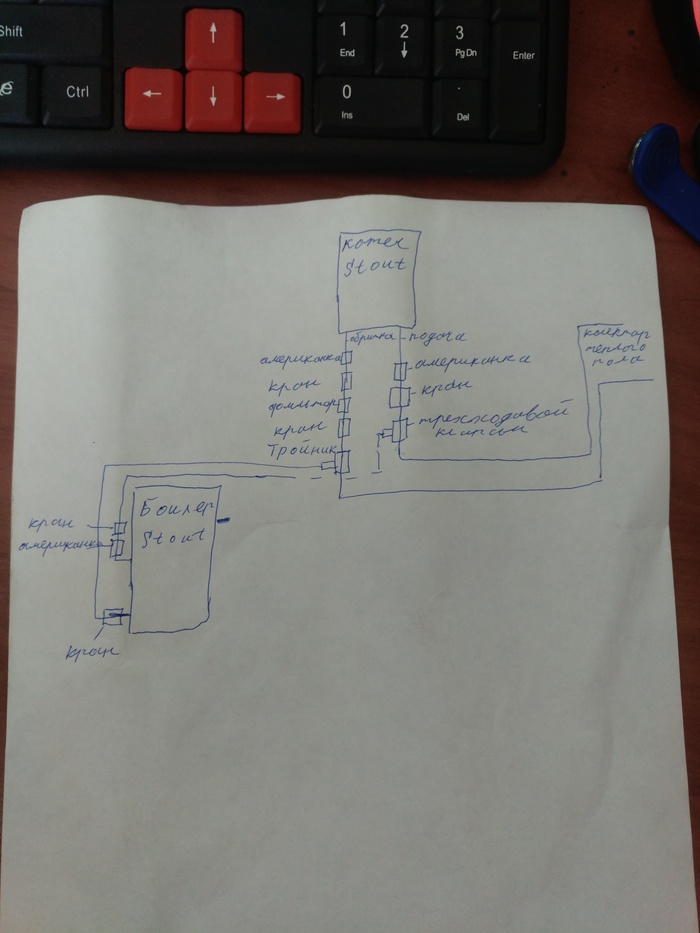 Shift
Ctrl
1
End
2
3
Pg Dn
Enter
0
Ins
.
Del
котел
Stout
обратка
подача
американка
кран
фильтр
кран
Тройник
американка
кран
трехходовой
клапан
колектор
теплого
пола
Бойлер
Stout
кран
американка
кран